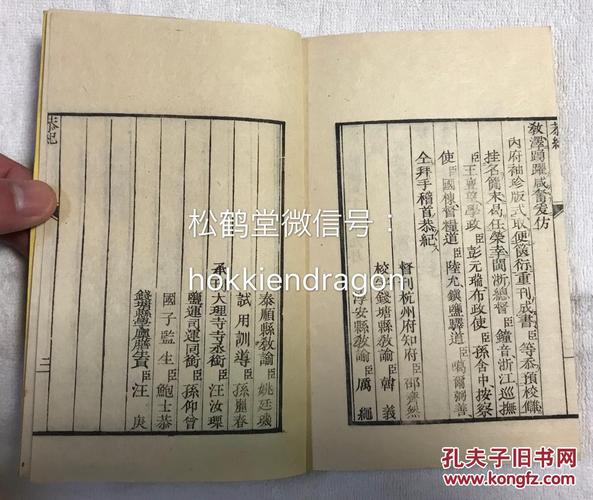 恭紀
教澤踴躍咸奮爰仿
內府袖珍版式取便篋衍重刊成書臣等忝預校讎
挂名簡末曷任榮幸閩浙總督臣鐘音浙江巡撫
臣王亶望學政臣彭元瑞布政使臣孫含中按察
使臣國棟督糧道臣陸允鎮鹽驛道臣噶爾弼善
仝拜手稽首恭紀
督刊杭州府知府臣邵齊然
校錢塘縣教諭臣韓義
淳安縣教諭臣厲繩
泰順縣教諭臣姚廷璣
試用訓導臣孫麗春
承大理寺寺丞銜臣汪汝瑮
鹽運司運同銜臣孫仰曾
國子監生臣鮑士恭
錢塘縣學廩膳生員臣汪庚
恭紀
二
松鹤堂微信号：
hokkiendragon
孔夫子旧书网
www.kongfz.com